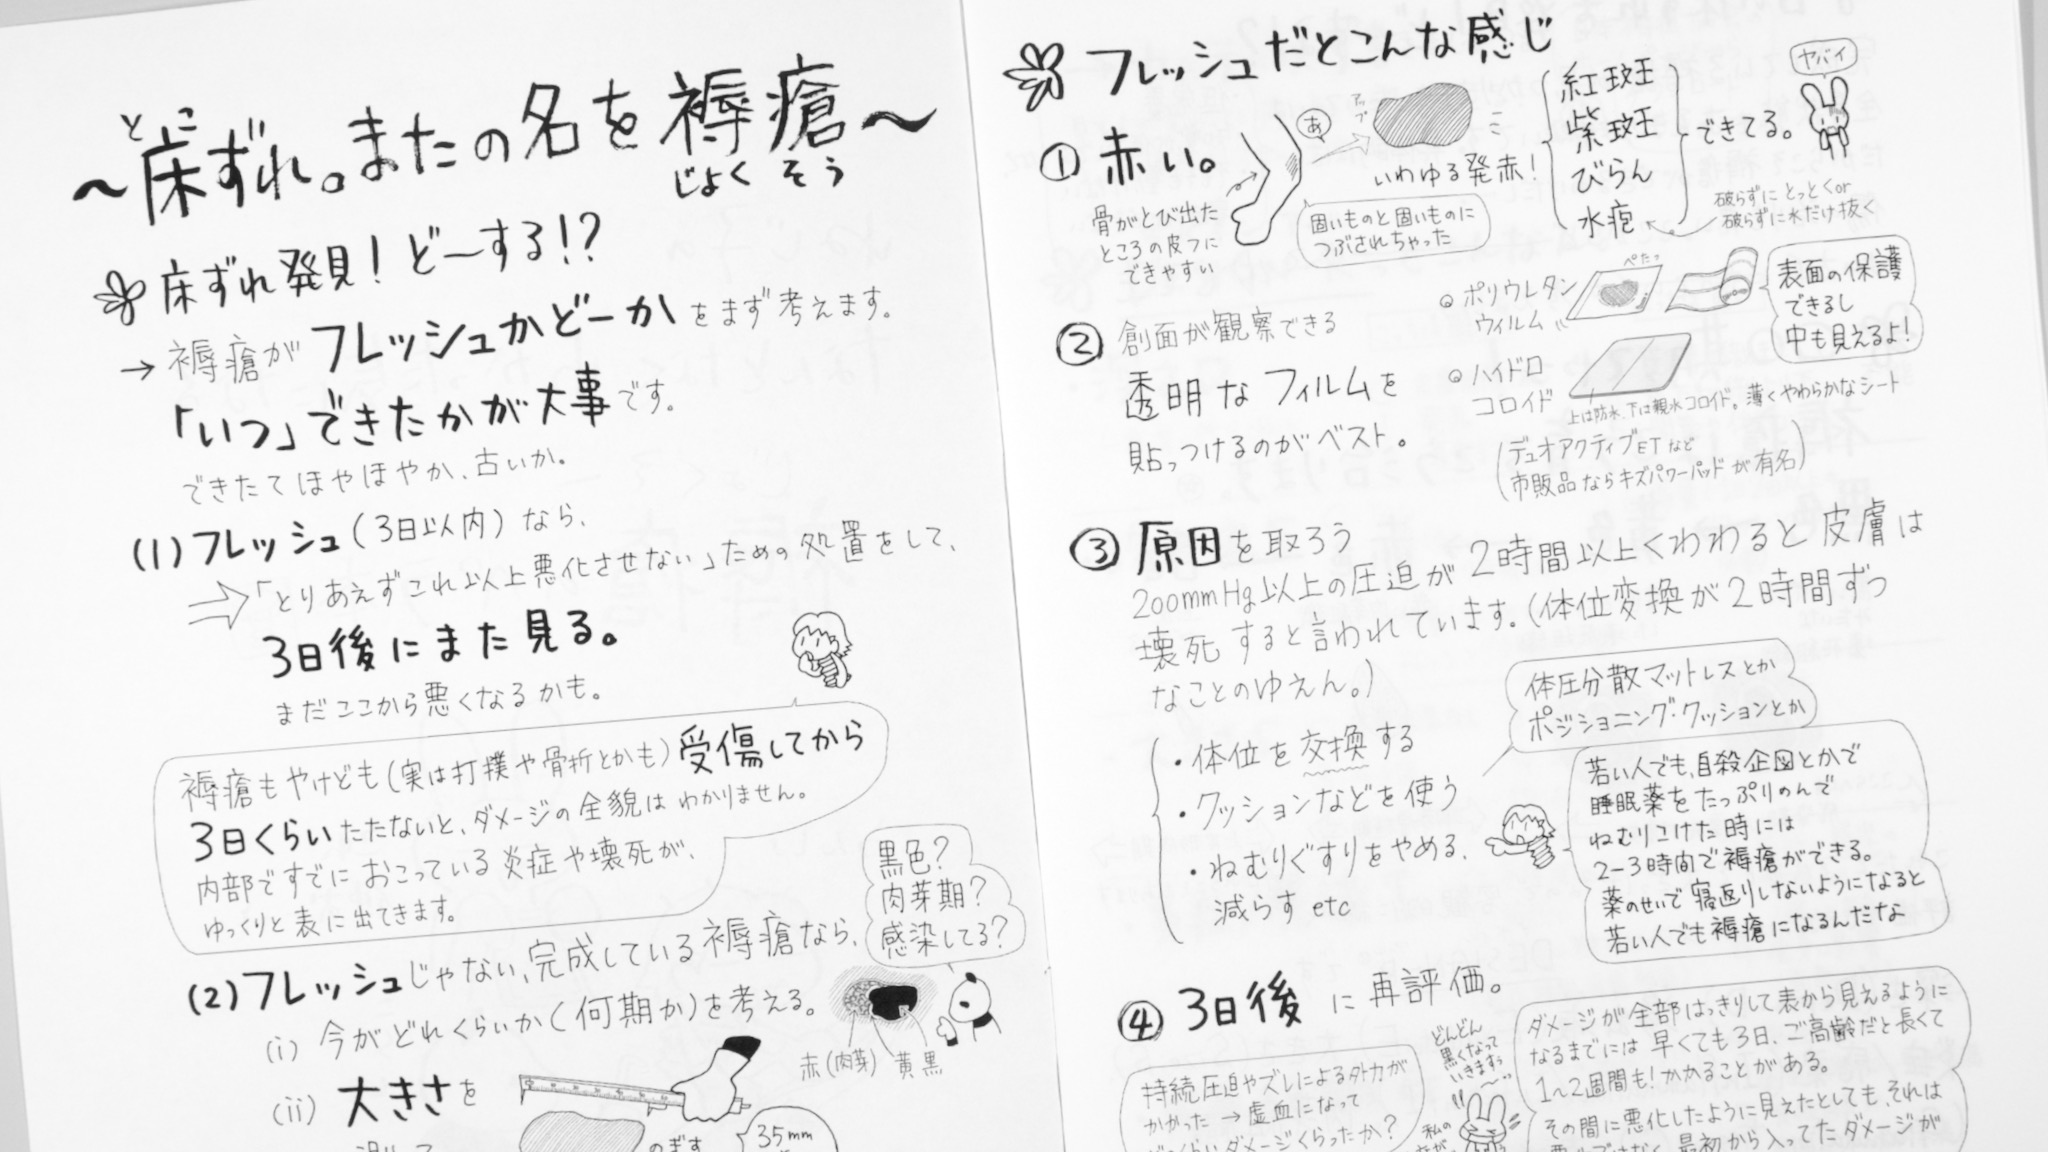 とこ
〜床ずれ。またの名を褥瘡〜
じょくそう
床ずれ発見！ど〜する!?
→ 褥瘡がフレッシュかどーかをまず考えます。
「いつ」できたかが大事です。
できたてほやほやか、古いか。
(1)フレッシュ(3日以内)なら、
⇒「とりあえずこれ以上悪化させない」ための処置をして、
3日後にまた見る。
まだここから悪くなるかも。
褥瘡もやけども(実は打撲や骨折とかも)受傷してから
3日くらいたたないと、ダメージの全貌はわかりません。
内部ですでにおこっている炎症や壊死が、
ゆっくりと表に出てきます。
(2)フレッシュじゃない、完成している褥瘡なら、
(i) 今がどれくらいか(何期か)を考える。
黒色？
肉芽期？
感染してる？
赤(肉芽) 黄 黒
(ii) 大きさを
のぎす
35mm
フレッシュだとこんな感じ
① 赤い。
骨がとび出た
ところの皮フに
できやすい
あ
アップ
いわゆる発赤！
固いものと固いものに
つぶされちゃった
紅斑
紫斑
びらん
水疱
できてる。
ヤバイ
破らずにとっとくor
破らずに水だけ抜く
② 創面が観察できる
透明なフィルムを
貼っつけるのがベスト。
ポリウレタン
ウィルム
ペたっ
表面の保護
できるし
中も見えるよ！
ハイドロ
コロイド
上は防水、下は親水コロイド。薄くやわらかなシート
(デュオアクティブETなど
市販品ならキズパワーパッドが有名)
③ 原因を取ろう
200mmHg以上の圧迫が2時間以上くわわると皮膚は
壊死すると言われています。(体位変換が2時間ずつ
なことのゆえん。)
・体位を交換する
・クッションなどを使う
・ねむりぐすりをやめる、
減らす etc
体圧分散マットレスとか
ポジショニング・クッションとか
若い人でも、自殺企図とかで
睡眠薬をたっぷりのんで
ねむりこけた時には
2-3時間で褥瘡ができる。
薬のせいで寝返りしないようになると
若い人でも褥瘡になるんだな
④ 3日後に再評価。
持続圧迫やズレによる外力が
かかった → 虚血になって
どんどん
黒くなって
いきますっ
私の
ダメージが全部はっきりして表から見えるように
なるまでには早くても3日、ご高齢だと長くて
1〜2週間も！かかることがある。
その間に悪化したように見えたとしても、それは
最初から入ってたダメージが